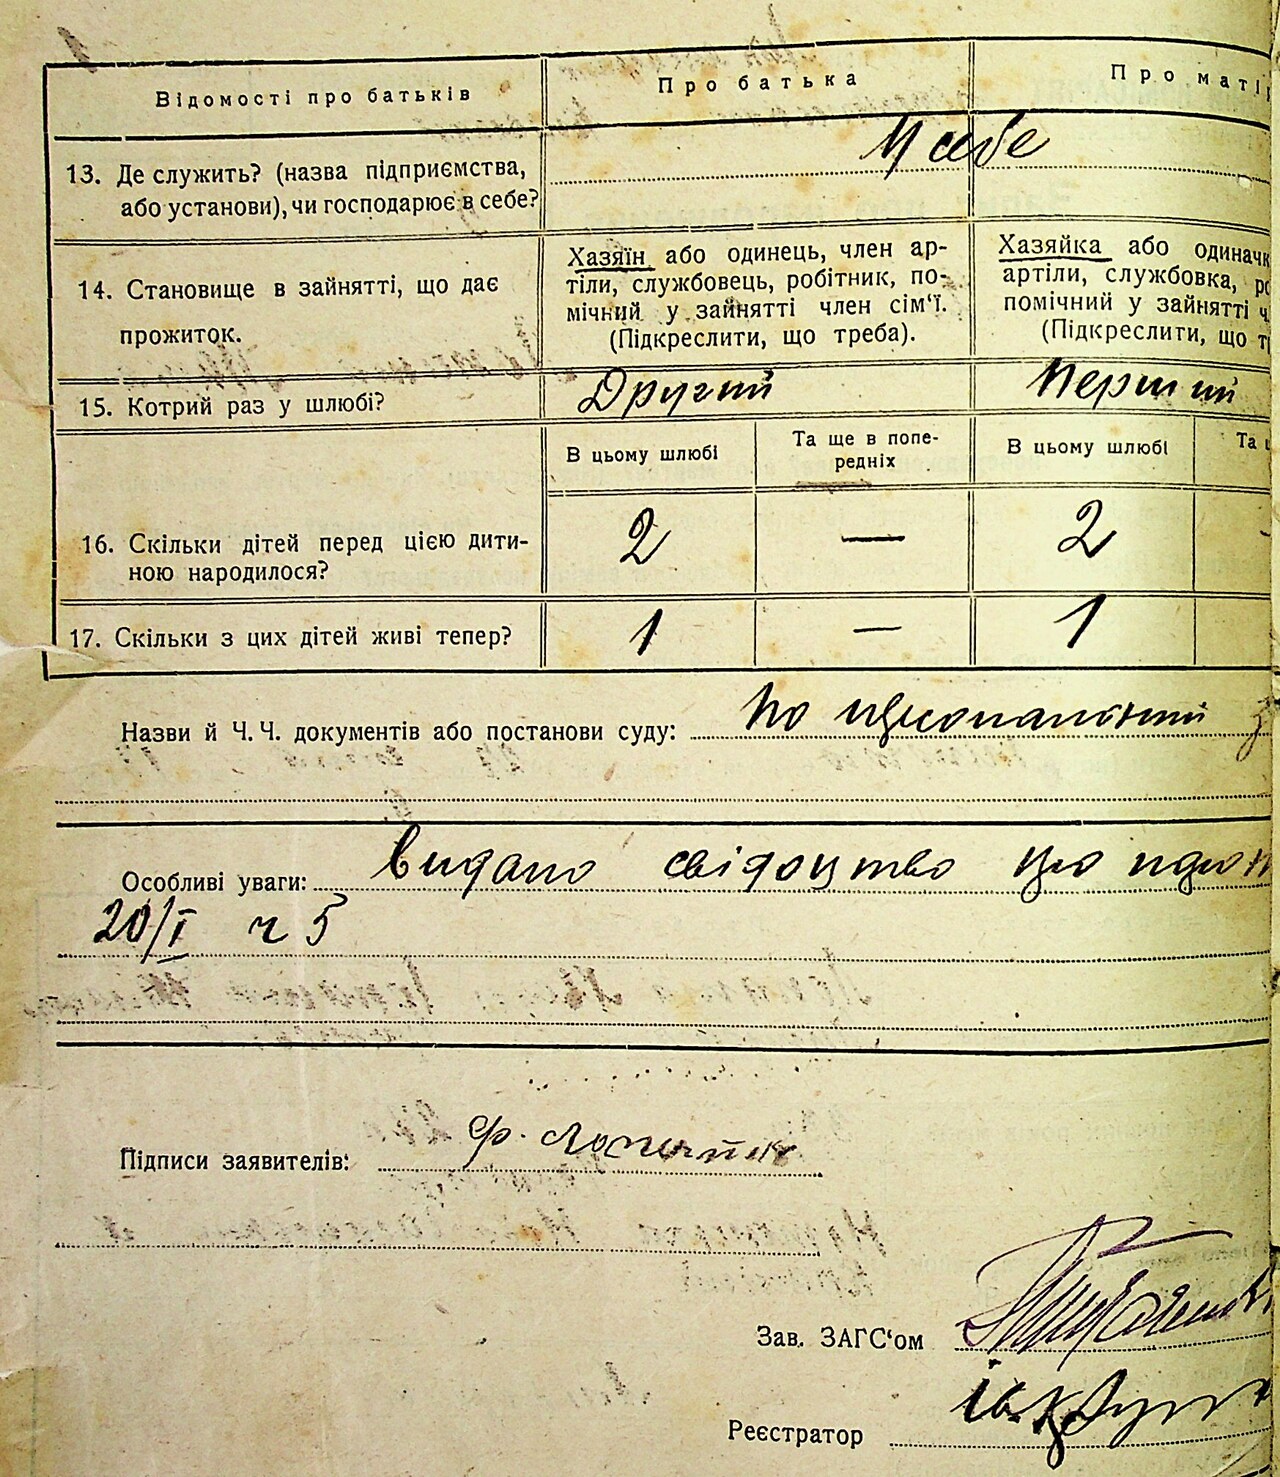 Відомості про батьків
Про батька
Про матір
13. Де служить? (назва підприємства,
або установи), чи господарює в себе?
У себе
14. Становище в зайнятті, що дає
прожиток.
Хазяїн або одинець, член ар-
тіли, службовець, робітник, по-
мічний у зайнятті член сім'ї.
(Підкреслити, що треба).
Хазяйка або одиначк
артіли, службовка, ро
помічний у зайнятті ч
(Підкреслити, що т
15. Котрий раз у шлюбі?
Другий
Перший
В цьому шлюбі
Та ще в попе-
редніх
В цьому шлюбі
Та
16. Скільки дітей перед цією дити-
ною народилося?
2 — 2
17. Скільки з цих дітей живі тепер?
1 — 1
Назви й Ч. Ч. документів або постанови суду: По
Особливі уваги: видано свідоцтво про
20/I ч 5
Підписи заявителів: Ф.
Зав. ЗАГС'ом
Реєстратор